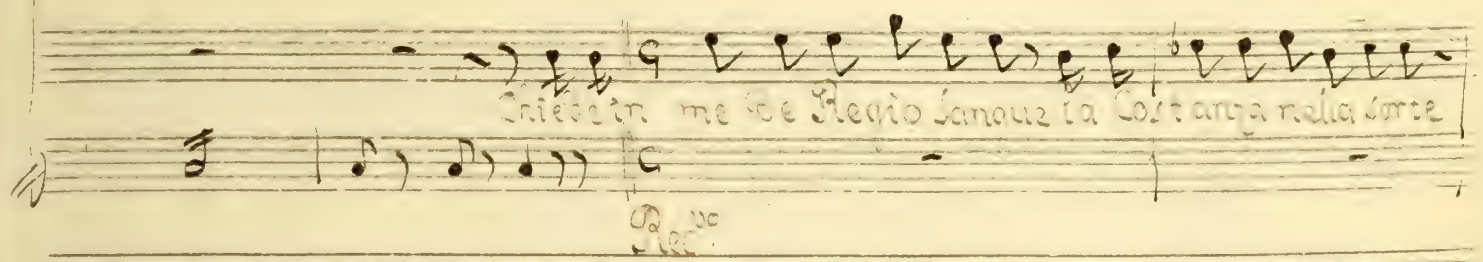 Chiede in me de Regio Sangue la Costanza nella sorte
Rec.vo